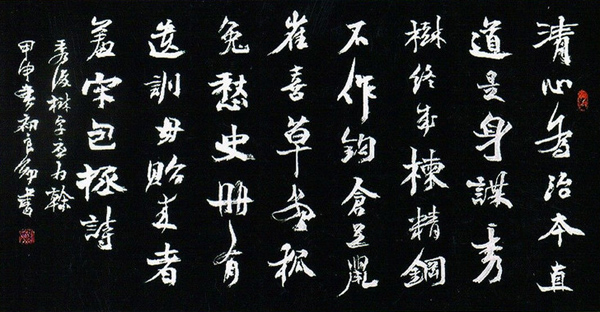 清心為治本直
道是身謀秀
樹終成棟精鋼
不作鉤倉足鼠
雀喜草盡狐
兔愁史冊有
遺訓毋貽來者
羞宋包拯詩
秀後樹字應為幹
甲申初書